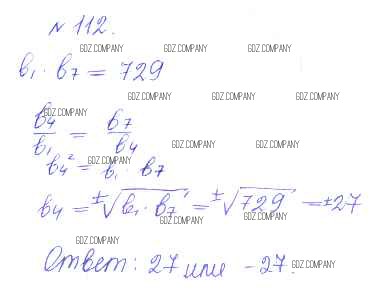 № 112.
GDZ.COMPANY GDZ.COMPANY GDZ.COMPANY
b₁ · b₇ = 729
GDZ.COMPANY GDZ.COMPANY GDZ.COMPANY
GDZ.COMPANY
b₄/b₁ = b₇/b₄
GDZ.COMPANY GDZ.COMPANY
GDZ.COMPANY
b₄² = b₁ · b₇
b₄ = ±√(b₁ · b₇) = ±√729 = ±27
GDZ.COMPANY GDZ.COMPANY
GDZ.COMPANY
Ответ: 27 или -27.
GDZ.COMPANY